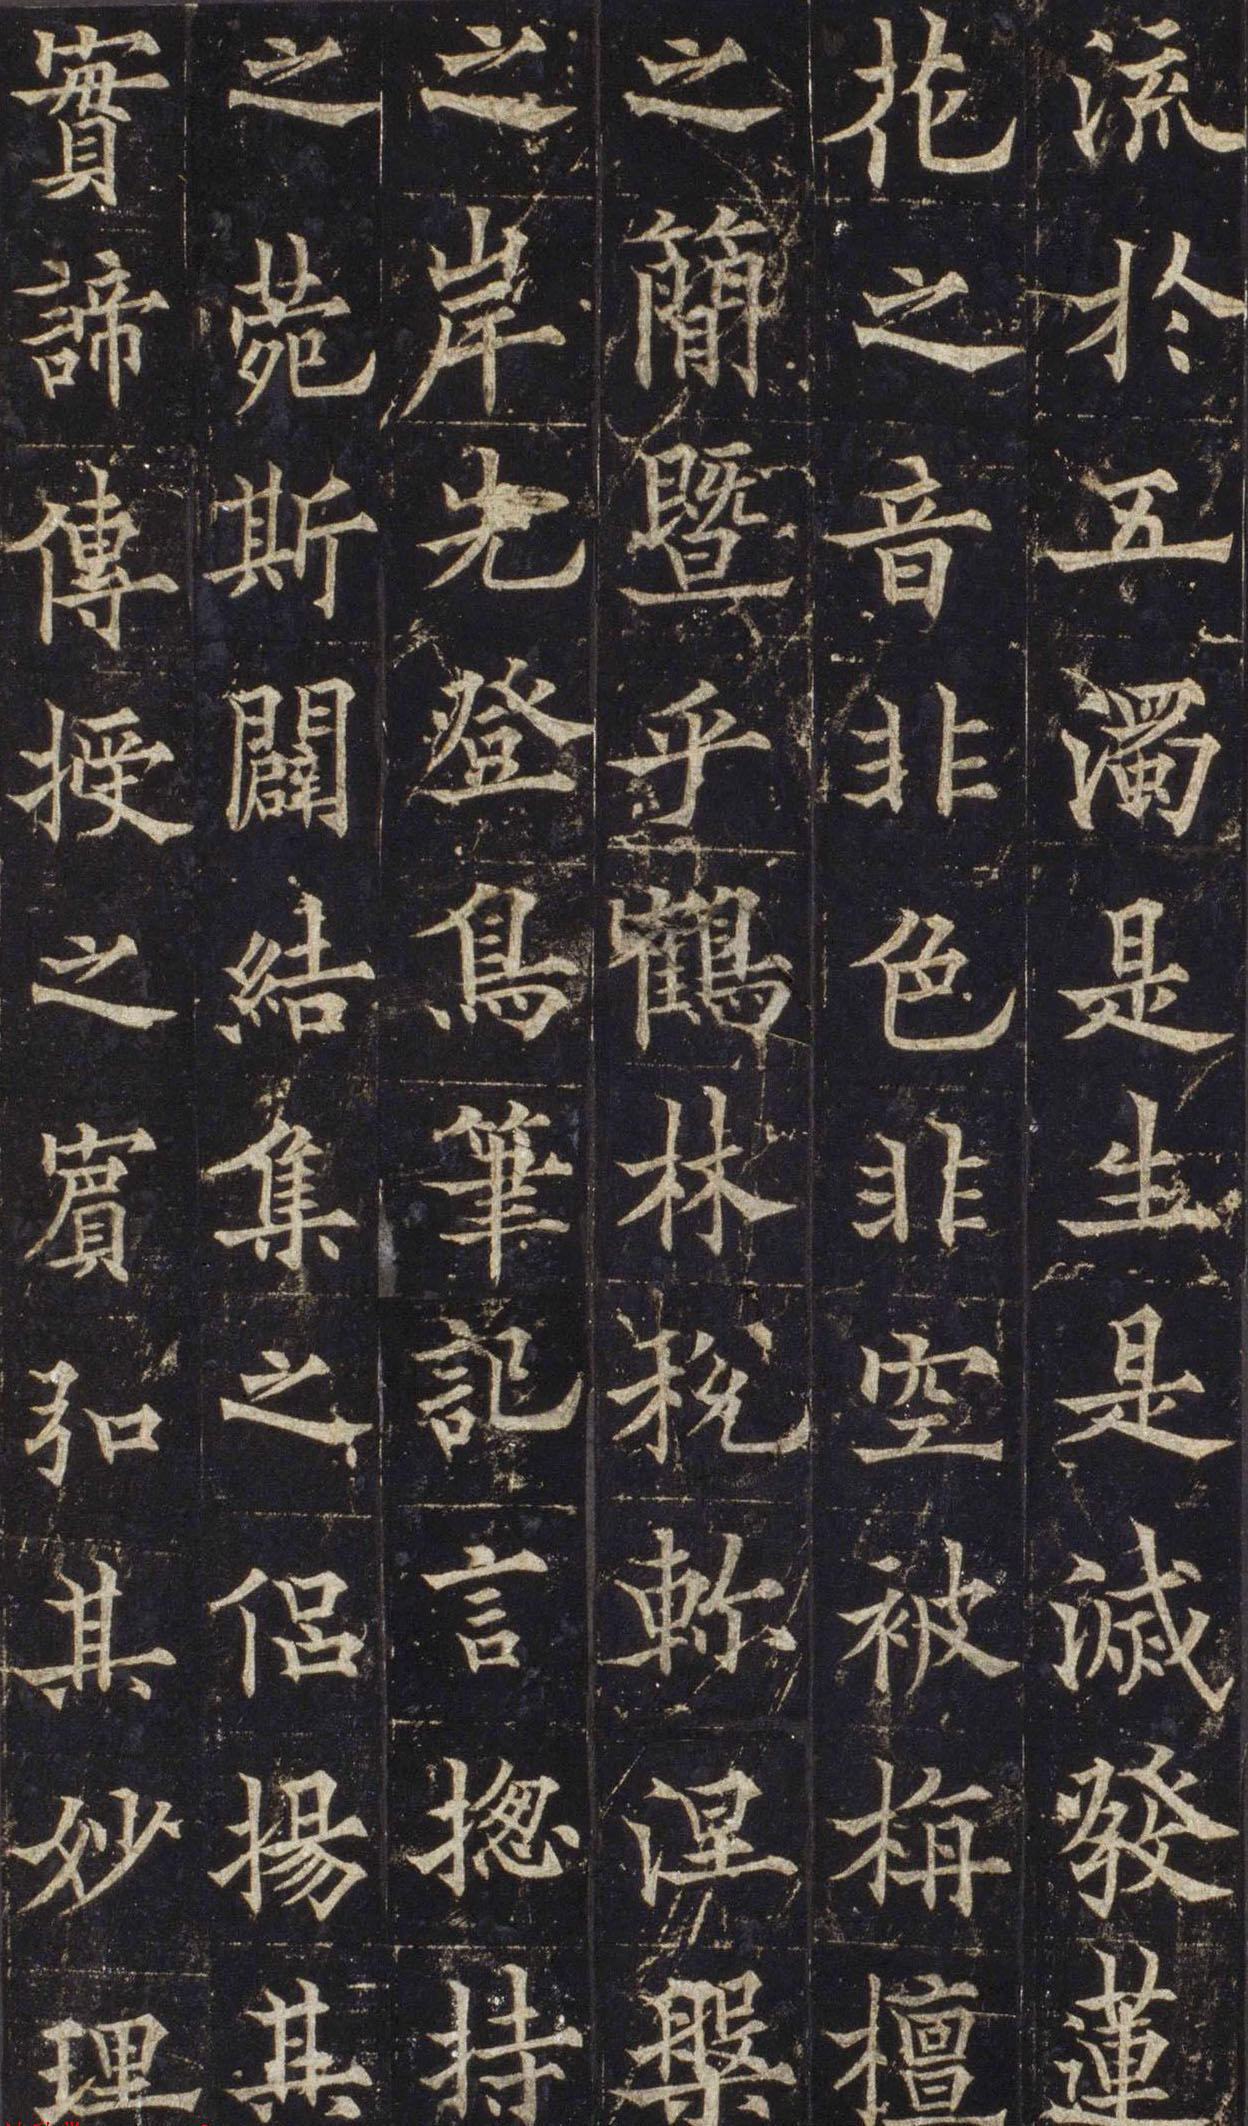 流於五濁是生是滅發蓮
花之音非色非空被栴檀
之簡暨乎鶴林稅軫涅槃
之岸先登鳥筆記言揔持
之菀斯闢結集之侶揚其
實諦傳授之賓弘其妙理